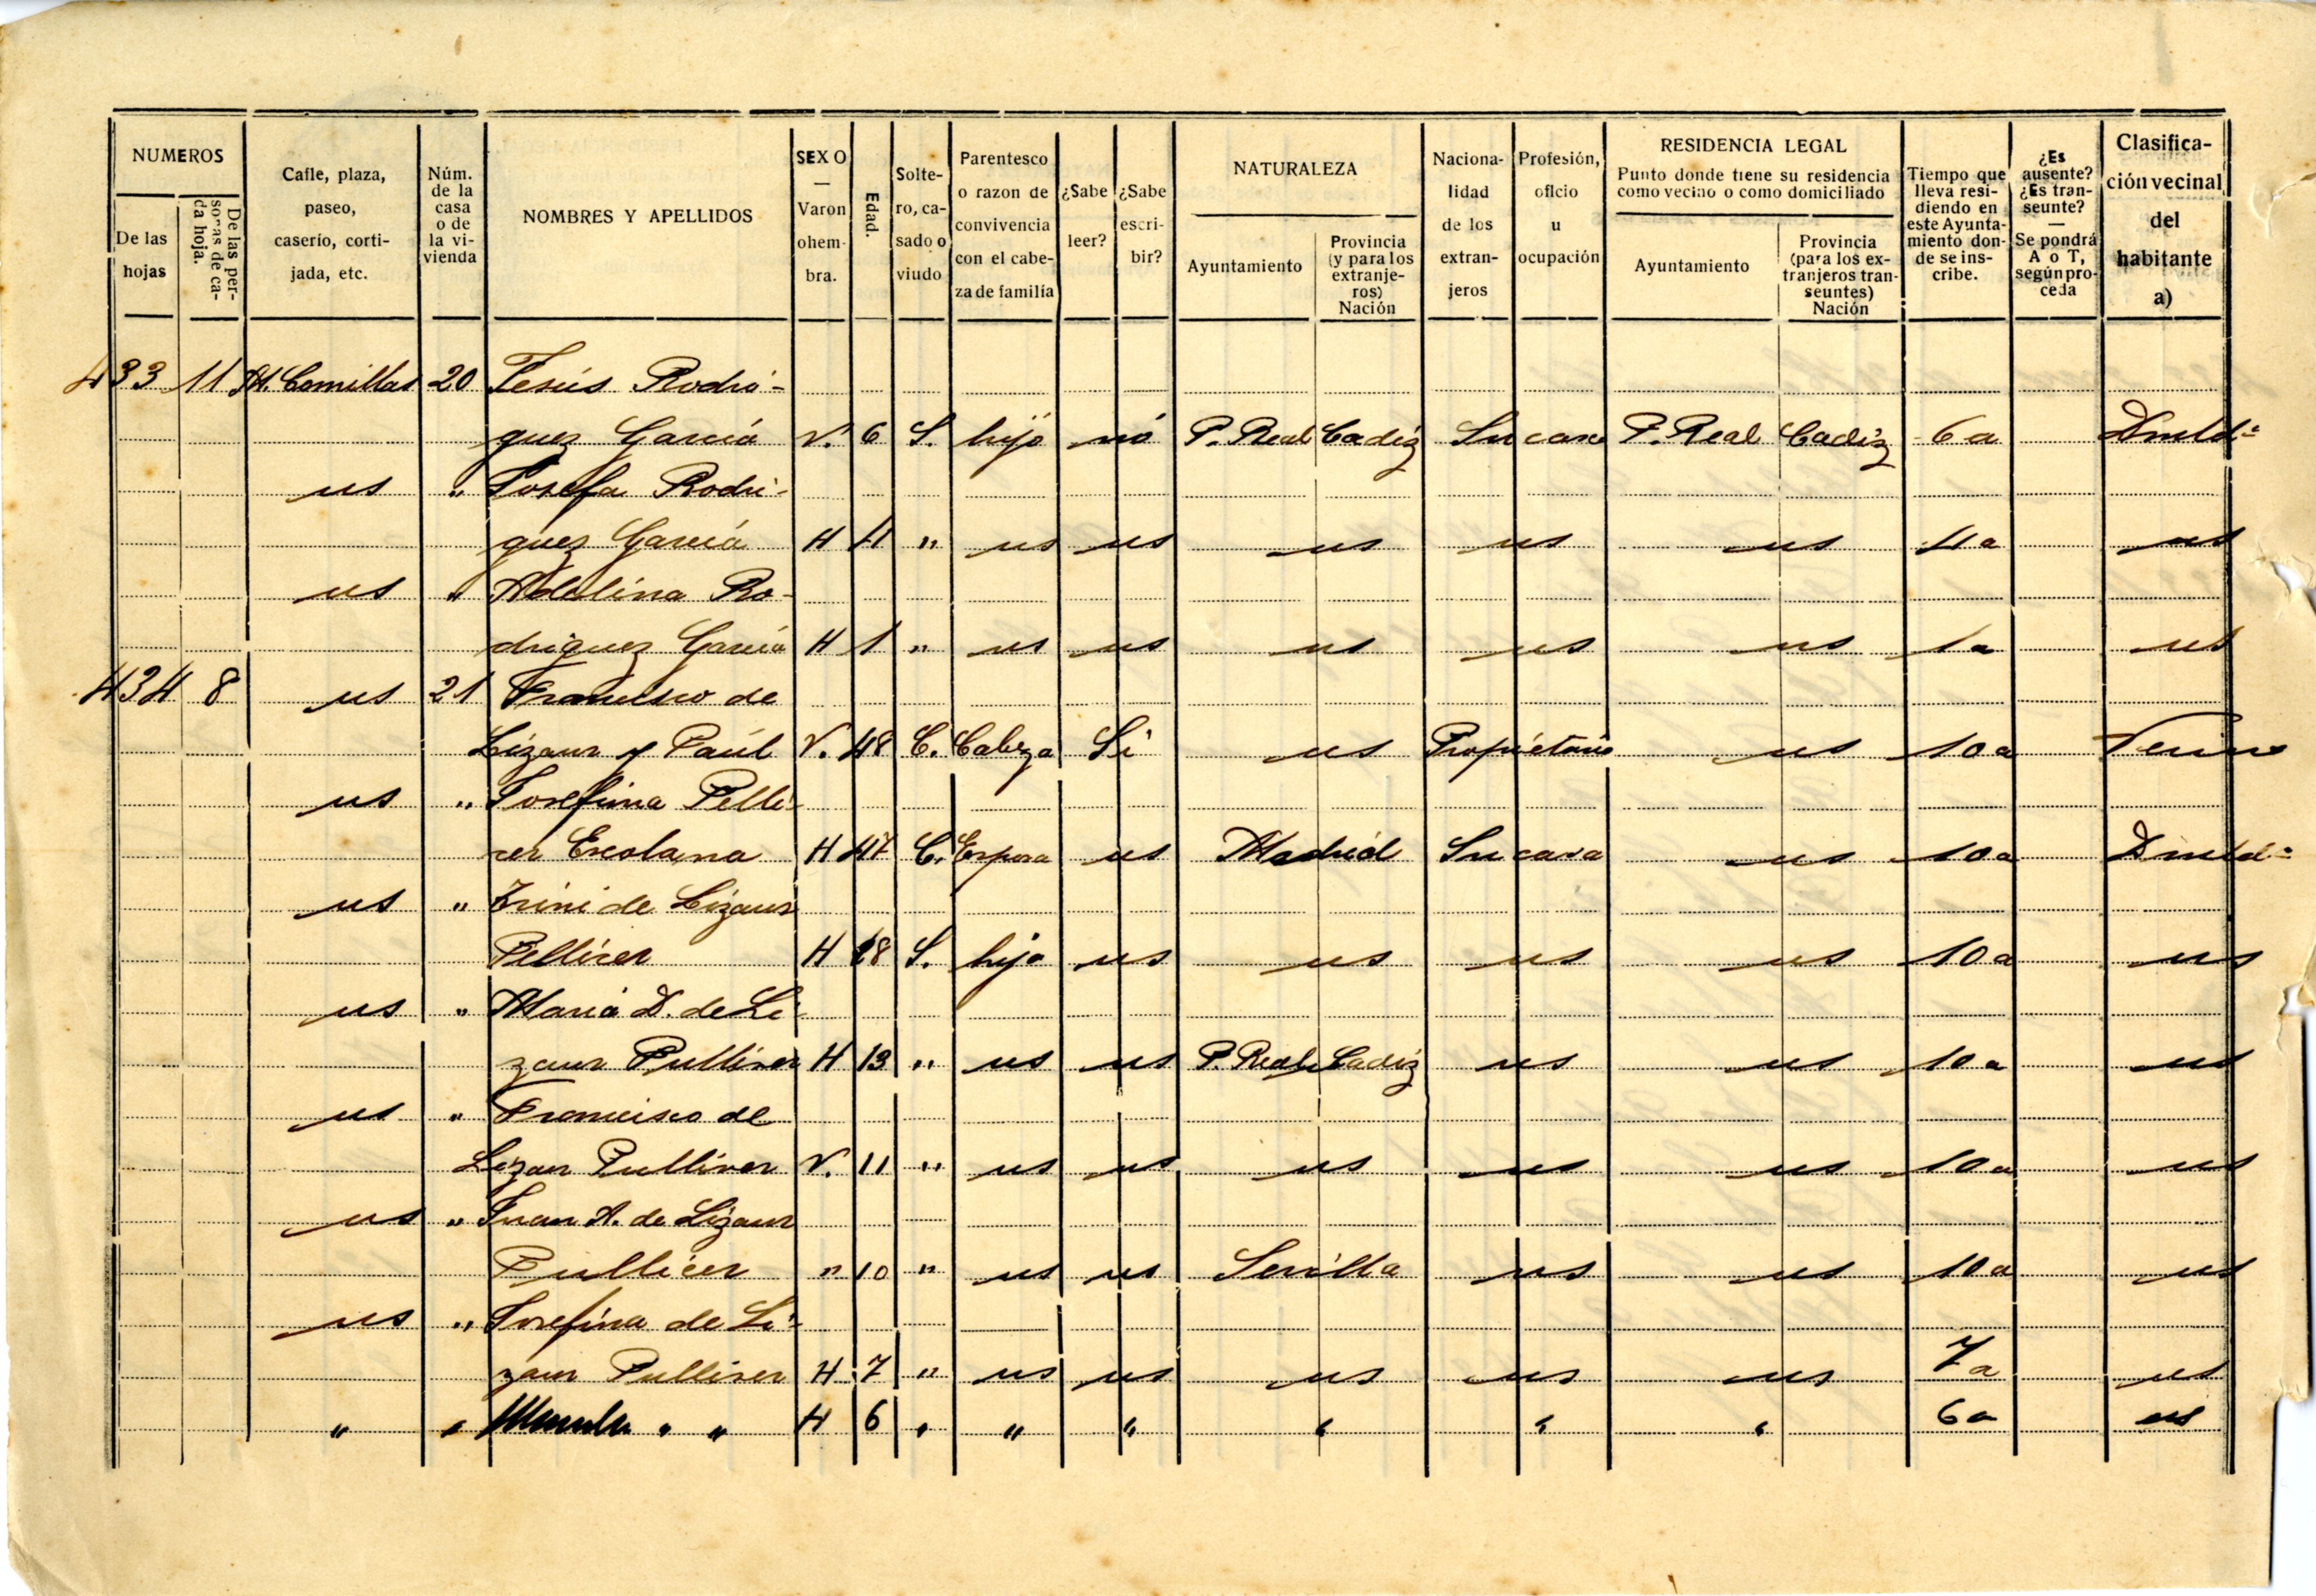 NUMEROS
De las hojas
De las per- so.nas de ca- da hoja.
Calle, plaza, paseo, caserío, corti- jada, etc.
Núm. de la casa o de la vi- vienda
NOMBRES Y APELLIDOS
SEXO — Varon ohem- bra.
Edad.
Solte- ro, ca- sado o viudo
Parentesco o razon de convivencia con el cabe- za de familia
¿Sabe leer?
¿Sabe escri- bir?
NATURALEZA
Ayuntamiento
Provincia (y para los extranje- ros) Nación
Naciona- lidad de los extran- jeros
Profesión, oficio u ocupación
RESIDENCIA LEGAL
Punto donde tiene su residencia como vecino o como domiciliado
Ayuntamiento
Provincia (para los ex- tranjeros tran- seuntes) Nación
Tiempo que lleva resi- diendo en este Ayunta- miento don- de se ins- cribe.
¿Es ausente? ¿Es tran- seunte? — Se pondrá A o T, según pro- ceda
Clasifica- ción vecinal del habitante a)
433 11 M. Comillas 20 Jesús Rodri-
guez García V. 6 S. hijo nó P. Real Cadiz Su casa P. Real Cadiz 6 a Dmcld.º
us " Josefa Rodri-
guez García H 4 " us us us us us 4 a us
us " Adelina Ro-
driguez García H 1 " us us us us us 1 a us
434 8 us 21 Francisco de
Lizaur y Paúl V. 48 C. Cabeza Si us Propietario us 10 a Vecino
us " Josefina Pelli-
cer Escolana H 47 C. Esposa us Madrid Su casa us 10 a Dmcld.º
us " Trini de Lizaur
Pellicer H 18 S. hija us us us us 10 a us
us " Maria D. de Li-
zaur Pullicer H 13 " us us P. Real Cadiz us us 10 a us
us " Francisco de
Lizaur Pullicer V. 11 " us us us us us 10 a us
us " Juan A. de Lizaur
Pullicer " 10 " us us Sevilla us us 10 a us
us " Josefina de Li-
zaur Pullicer H 7 " us us us us us 7 a us
" " " " H 6 " " " " " " 6 a us